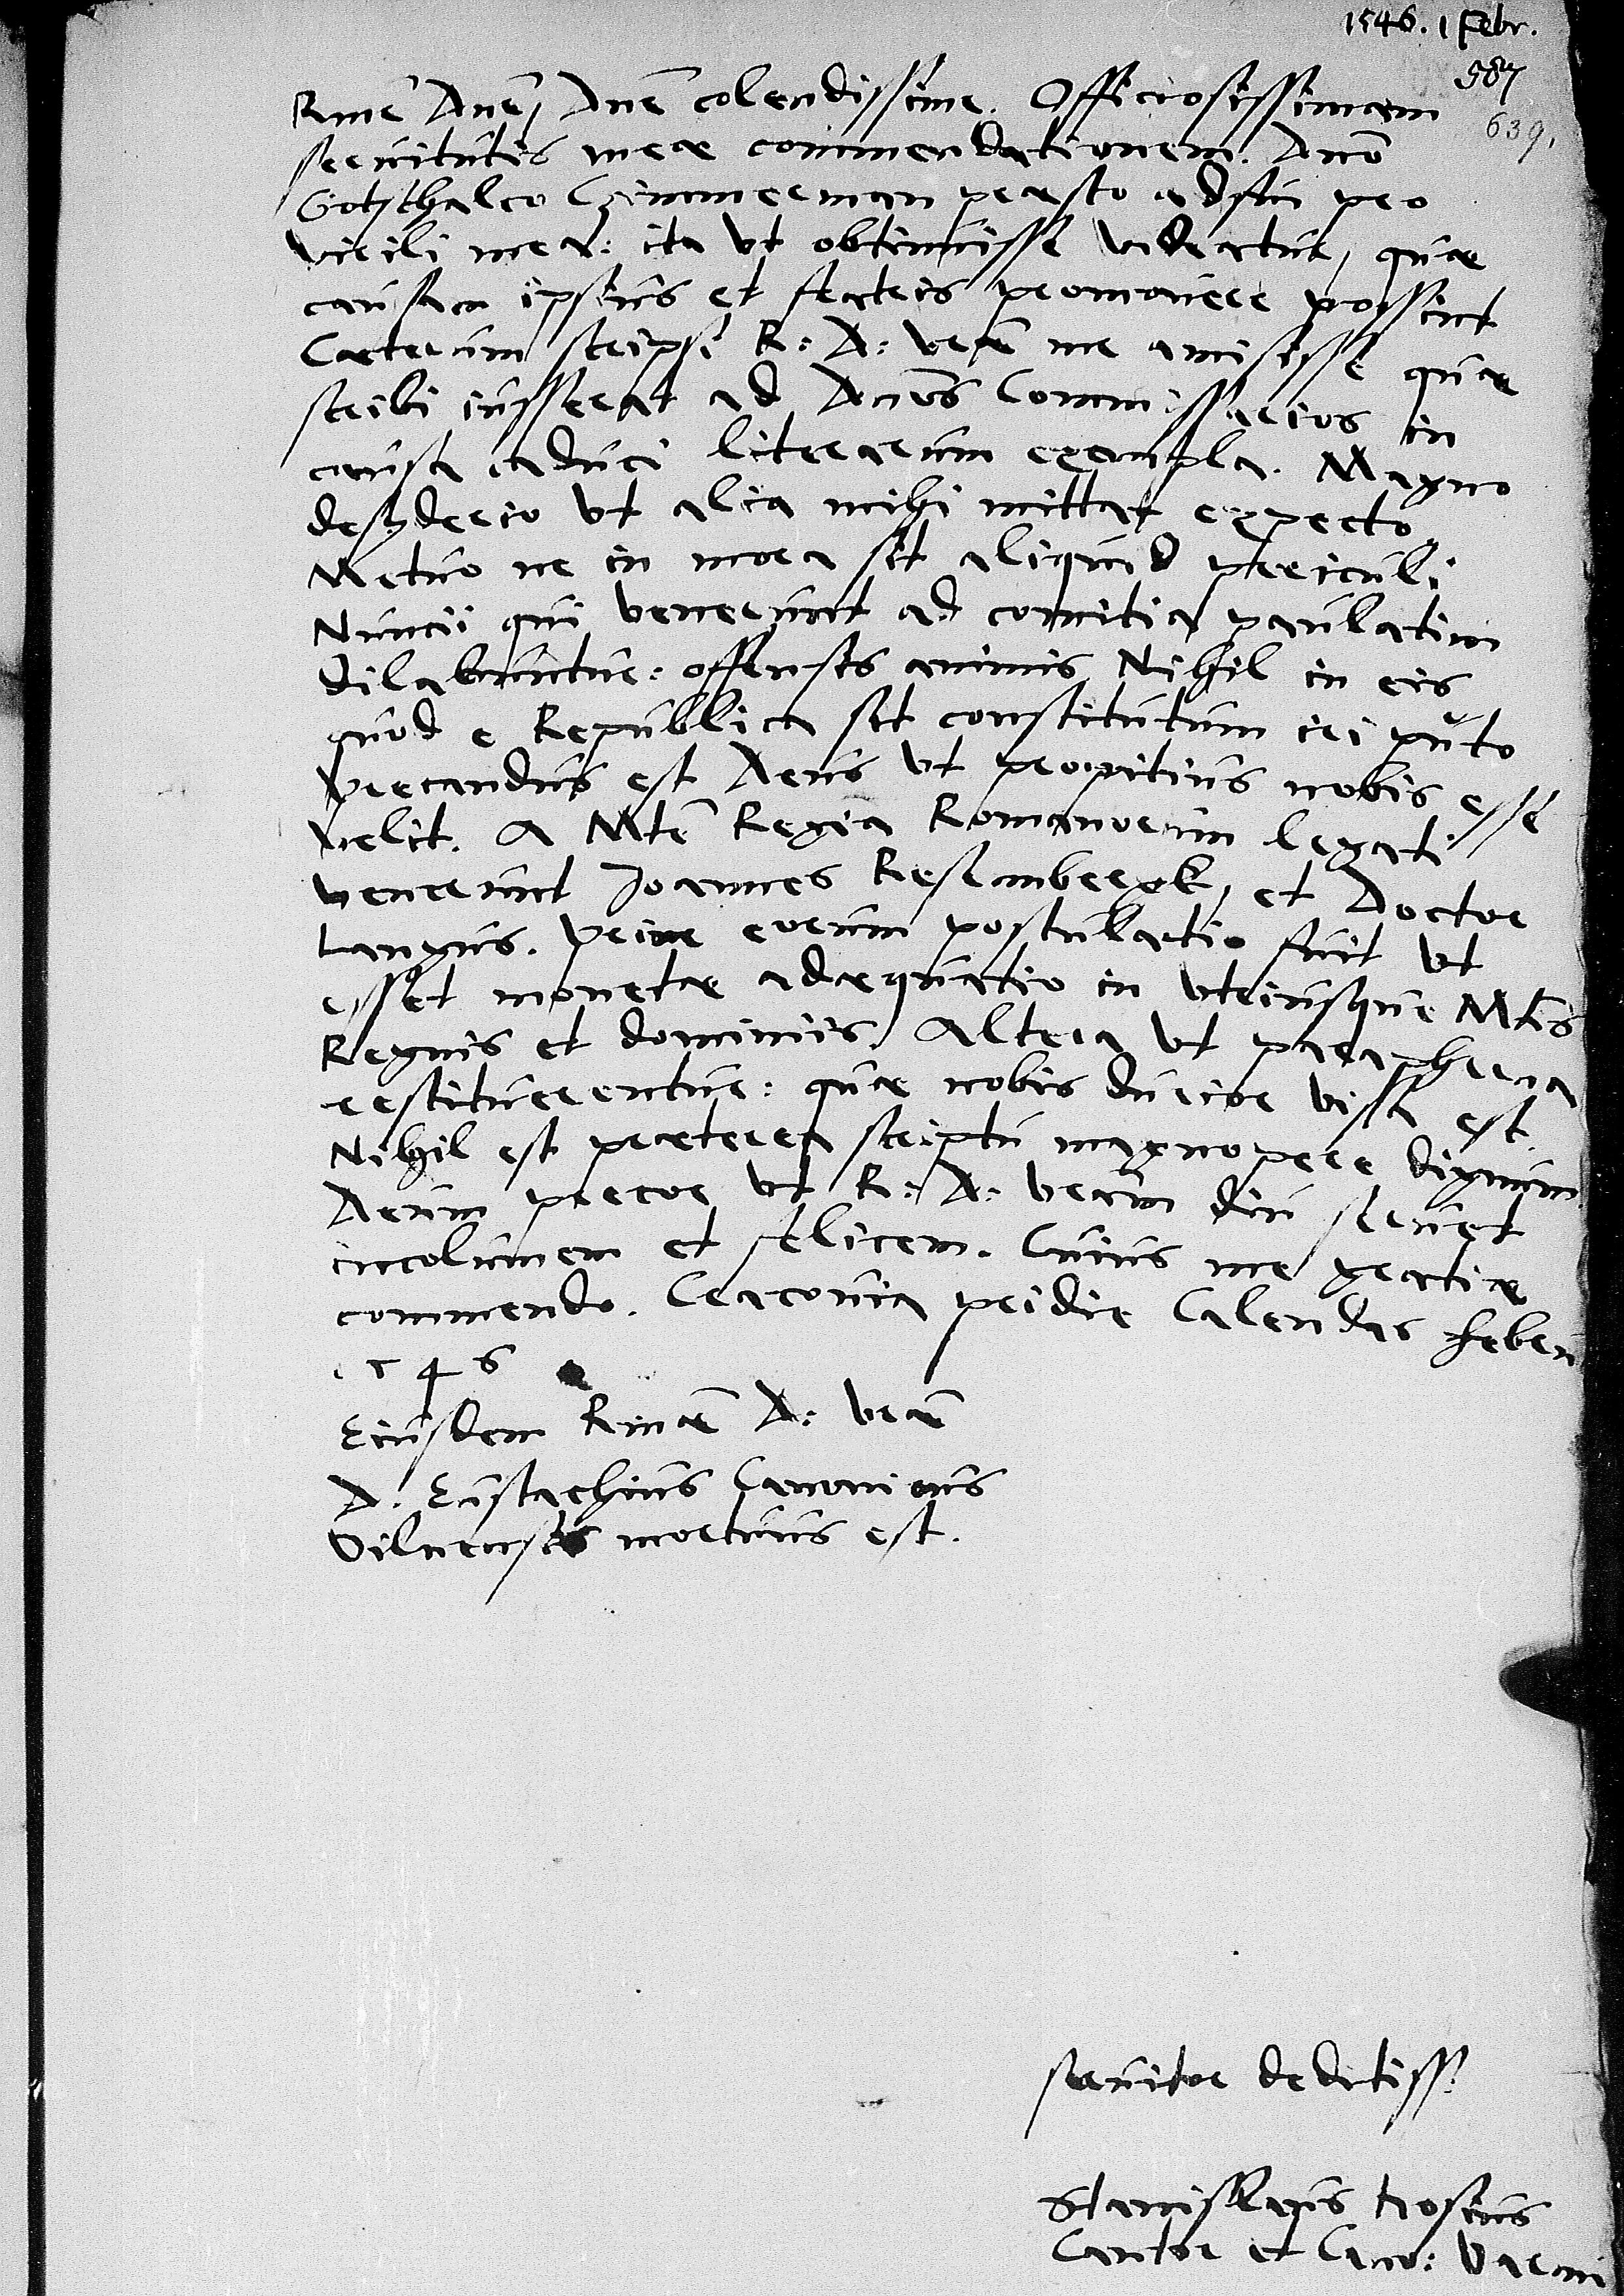 1546. 1 Febr.
587
639.
Rme Dne, Dne colendissime. Officiosissimam
servitutis meae commendationem. Dno
Gotschalco Czimmerman praesto adfui pro
virili mea: ita ut obtinuisse videatur, quae
causam ipsius et fratris promovere possint
Caeterum scripsi R: D: vrae me amisisse quae
scribi iusserat ad Dnos Commissarios in
causa caduci literarum exempla. Magno
desyderio ut alia mihi mittat expecto
Metuo ne in mora sit aliquid periculi
Nuncii qui venerunt ad comitia paulatim
dilabuntur: offensis animis Nihil in eis
quod e Republica sit constitutum iri puto
Precandus est Deus ut propitius nobis esse
velit. A Mte Regia Romanorum legati
venerunt Joannes Reslmbergk, et Doctor
Langus. Prior eorum postulatio fuit ut
esset monetae adaequatio in utriusque Mtis
Regnis et dominiis. Altera ut parapherna
restituerentur: quae nobis durior visa est.
Nihil est praeterea scriptu magnopere dignum
Deum precor ut R: D: vram diu servet
incolumem et felicem. Cuius me gratiae
commendo. Cracovia pridie Calendas Febru
1546
Eiusdem Rmae D: vrae
D. Eustachius Canonicus
Vilnensis mortuus est.
servitor deditiss:
Stanislaus Hosius
Cantor et Cano: Varmi